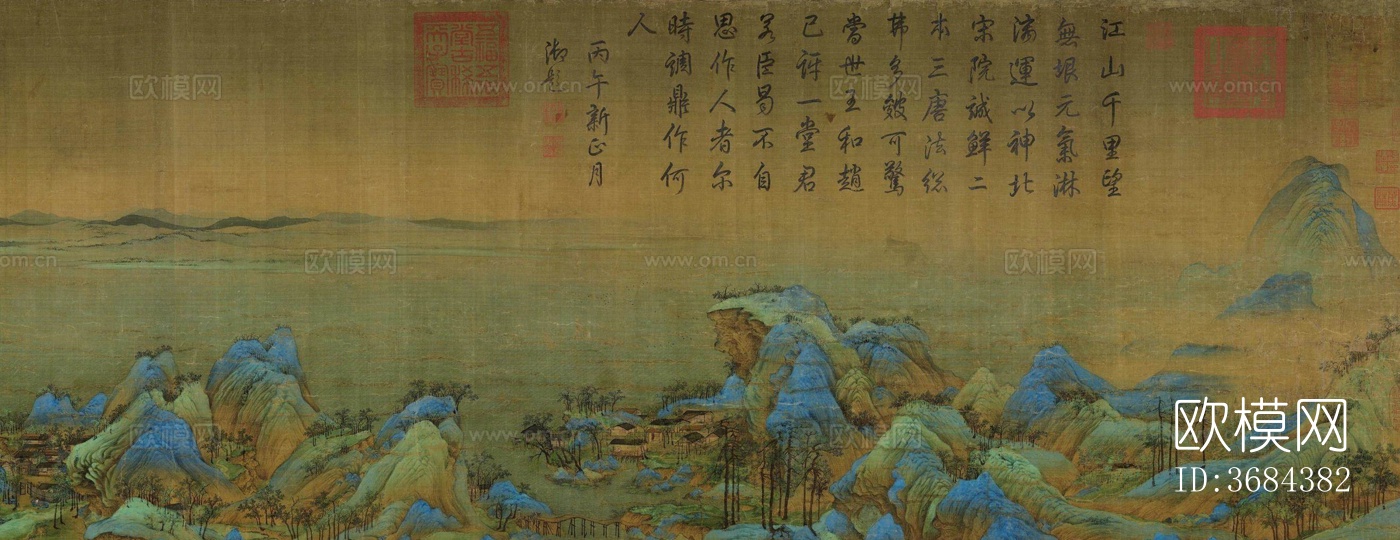 江山千里望
無垠元氣淋
漓運以神北
宋院誠鮮二
本三唐法総
弗多皴可驚
當世王和趙
已訝一堂君
若臣曷不自
思作人者尔
時調鼎作何
人
丙午新正月
御題
欧模网
www.om.cn
欧模网
www.om.cn
欧模网
om.cn
欧模网
www.om.cn
欧模网
www.om.cn
欧模网
www.om.cn
欧模网
欧模网
ID:3684382